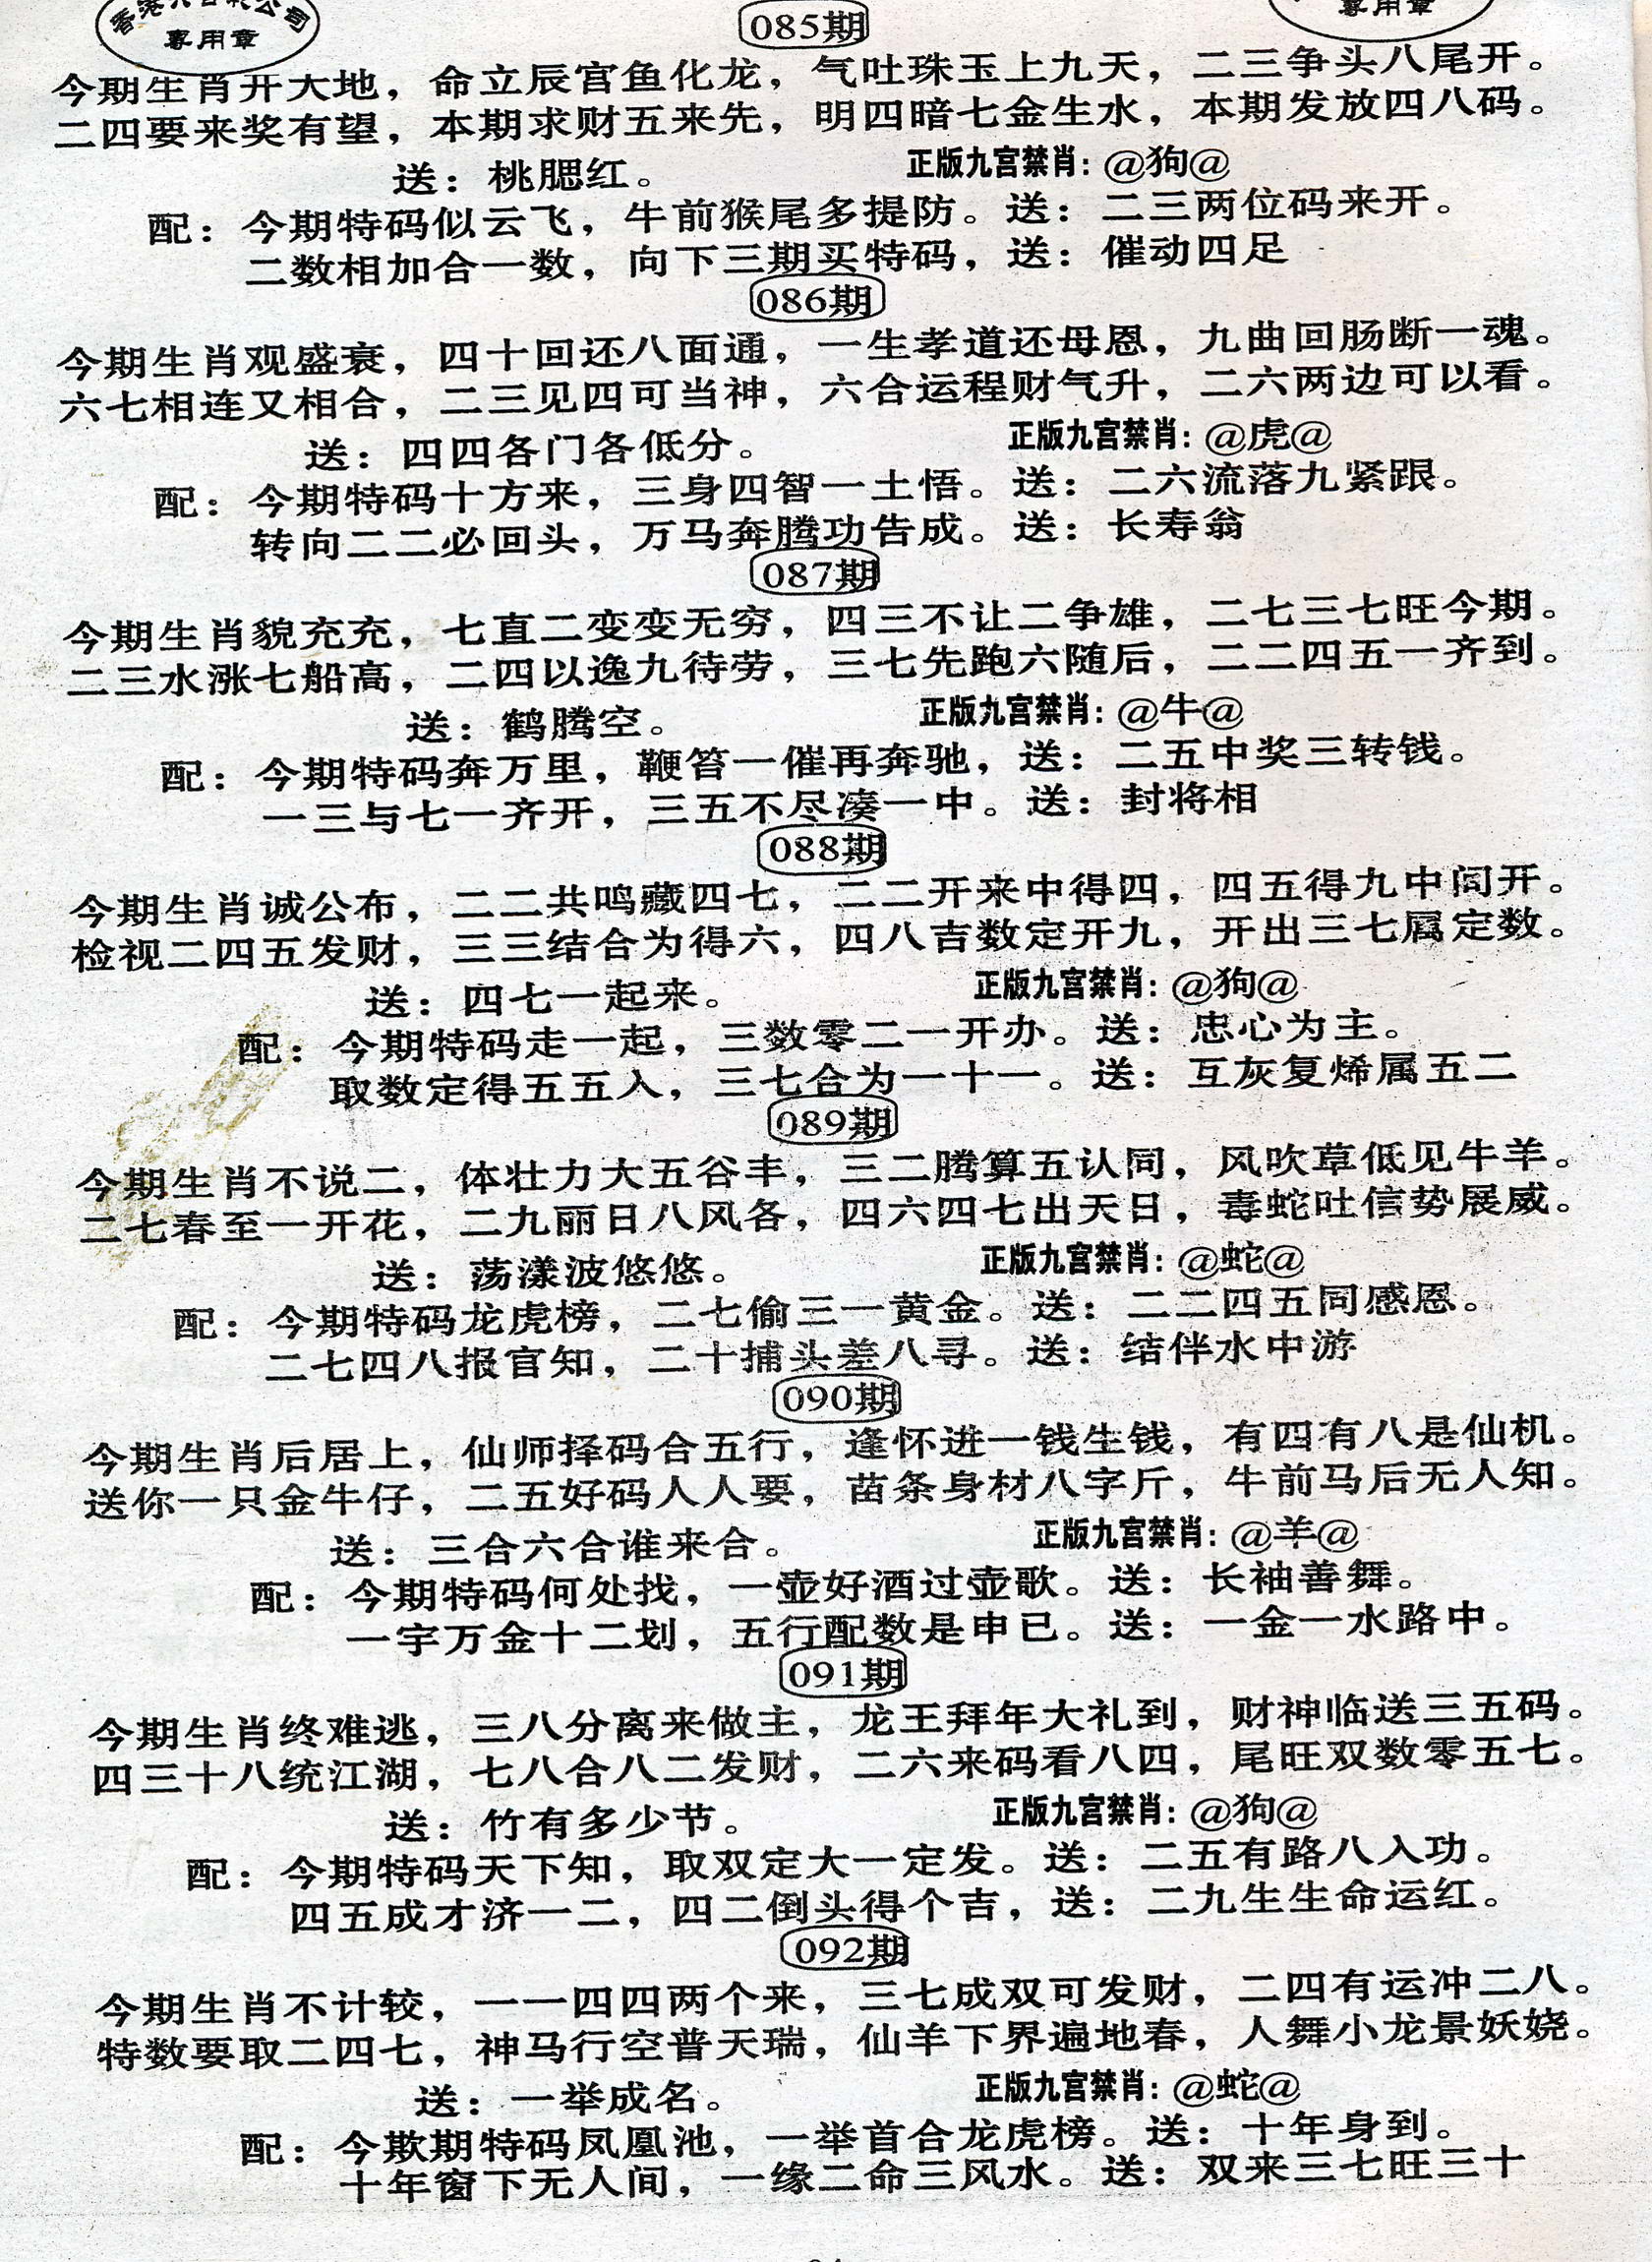 专用章
085期
专用章
今期生肖开大地，命立辰宫鱼化龙，气吐珠玉上九天，二三争头八尾开。
二四要来奖有望，本期求财五来先，明四暗七金生水，本期发放四八码。
送：桃腮红。 正版九宫禁肖：@狗@
配：今期特码似云飞，牛前猴尾多提防。送：二三两位码来开。
二数相加合一数，向下三期买特码，送：催动四足
086期
今期生肖观盛衰，四十回还八面通，一生孝道还母恩，九曲回肠断一魂。
六七相连又相合，二三见四可当神，六合运程财气升，二六两边可以看。
送：四四各门各低分。 正版九宫禁肖：@虎@
配：今期特码十方来，三身四智一土悟。送：二六流落九紧跟。
转向二二必回头，万马奔腾功告成。送：长寿翁
087期
今期生肖貌充充，七直二变变无穷，四三不让二争雄，二七三七旺今期。
二三水涨七船高，二四以逸九待劳，三七先跑六随后，二二四五一齐到。
送：鹤腾空。 正版九宫禁肖：@牛@
配：今期特码奔万里，鞭笞一催再奔驰，送：二五中奖三转钱。
一三与七一齐开，三五不尽凑一中。送：封将相
088期
今期生肖诚公布，二二共鸣藏四七，二二开来中得四，四五得九中间开。
检视二四五发财，三三结合为得六，四八吉数定开九，开出三七属定数。
送：四七一起来。 正版九宫禁肖：@狗@
配：今期特码走一起，三数零二一开办。送：忠心为主。
取数定得五五入，三七合为一十一。送：互灰复烯属五二
089期
今期生肖不说二，体壮力大五谷丰，三二腾算五认同，风吹草低见牛羊。
二七春至一开花，二九丽日八风各，四六四七出天日，毒蛇吐信势展威。
送：荡漾波悠悠。 正版九宫禁肖：@蛇@
配：今期特码龙虎榜，二七偷三一黄金。送：二二四五同感恩。
二七四八报官知，二十捕头差八寻。送：结伴水中游
090期
今期生肖后居上，仙师择码合五行，逢怀进一钱生钱，有四有八是仙机。
送你一只金牛仔，二五好码人人要，苗条身材八字斤，牛前马后无人知。
送：三合六合谁来合。 正版九宫禁肖：@羊@
配：今期特码何处找，一壶好酒过壶歌。送：长袖善舞。
一宇万金十二划，五行配数是申已。送：一金一水路中。
091期
今期生肖终难逃，三八分离来做主，龙王拜年大礼到，财神临送三五码。
四三十八统江湖，七八合八二发财，二六来码看八四，尾旺双数零五七。
送：竹有多少节。 正版九宫禁肖：@狗@
配：今期特码天下知，取双定大一定发。送：二五有路八入功。
四五成才济一二，四二倒头得个吉，送：二九生生命运红。
092期
今期生肖不计较，一一四四两个来，三七成双可发财，二四有运冲二八。
特数要取二四七，神马行空普天瑞，仙羊下界遍地春，人舞小龙景妖娆。
送：一举成名。 正版九宫禁肖：@蛇@
配：今欺期特码凤凰池，一举首合龙虎榜。送：十年身到。
十年窗下无人间，一缘二命三风水。送：双来三七旺三十